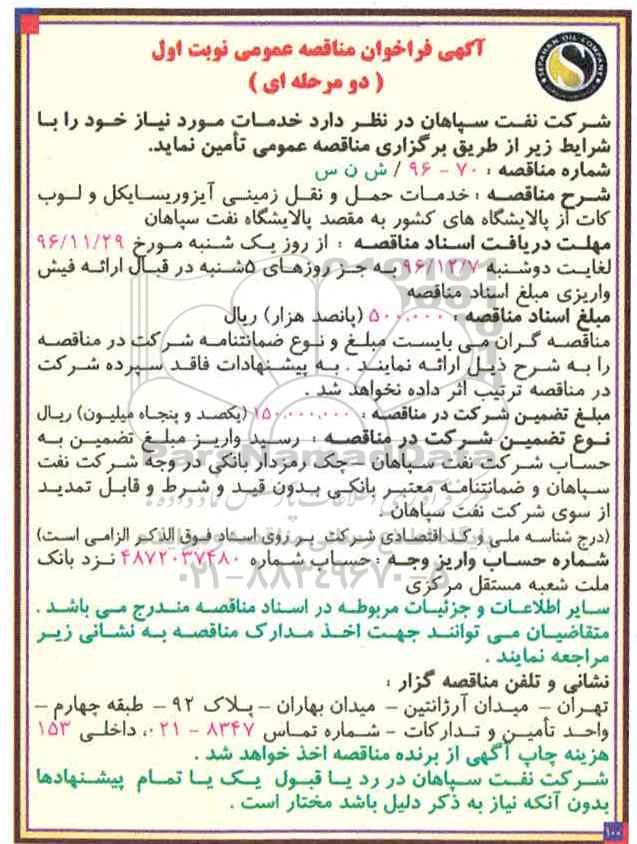 آگهی فراخوان مناقصه عمومی نوبت اول
( دو مرحله ای )
SEPAHAN OIL COMPANY
شرکت نفت سپاهان در نظر دارد خدمات مورد نیاز خود را با
شرایط زیر از طریق برگزاری مناقصه عمومی تأمین نماید.
شماره مناقصه : ۷۰ - ۹۶ / ش ن س
شرح مناقصه : خدمات حمل و نقل زمینی آیزوریسایکل و لوب
کات از پالایشگاه های کشور به مقصد پالایشگاه نفت سپاهان
مهلت دریافت اسناد مناقصه : از روز یک شنبه مورخ ۹۶/۱۱/۲۹
لغایت دوشنبه ۹۶/۱۲/۷ به جز روزهای ۵شنبه در قبال ارائه فیش
واریزی مبلغ اسناد مناقصه
مبلغ اسناد مناقصه : ۵۰۰،۰۰۰ (پانصد هزار) ریال
مناقصه گران می بایست مبلغ و نوع ضمانتنامه شرکت در مناقصه
را به شرح ذیل ارائه نمایند . به پیشنهادات فاقد سپرده شرکت
در مناقصه ترتیب اثر داده نخواهد شد .
مبلغ تضمین شرکت در مناقصه : ۱۵۰،۰۰۰،۰۰۰ (یکصد و پنجاه میلیون) ریال
نوع تضمین شرکت در مناقصه : رسید واریز مبلغ تضمین به
حساب شرکت نفت سپاهان – چک رمزدار بانکی در وجه شرکت نفت
سپاهان و ضمانتنامه معتبر بانکی بدون قید و شرط و قابل تمدید
از سوی شرکت نفت سپاهان .
(درج شناسه ملی و کد اقتصادی شرکت بر روی اسناد فوق الذکر الزامی است)
شماره حساب واریز وجه : حساب شماره ۴۸۷۲۰۳۷۴۸۰ نزد بانک
ملت شعبه مستقل مرکزی
سایر اطلاعات و جزئیات مربوطه در اسناد مناقصه مندرج می باشد .
متقاضیان می توانند جهت اخذ مدارک مناقصه به نشانی زیر
مراجعه نمایند .
نشانی و تلفن مناقصه گزار :
تهران – میدان آرژانتین – میدان بهاران – پلاک ۹۲ – طبقه چهارم –
واحد تأمین و تدارکات – شماره تماس ۸۳۴۷ - ۰۲۱، داخلی ۱۵۳
هزینه چاپ آگهی از برنده مناقصه اخذ خواهد شد .
شرکت نفت سپاهان در رد یا قبول یک یا تمام پیشنهادها
بدون آنکه نیاز به ذکر دلیل باشد مختار است .
ParsNamadData
۰۲۱-۸۸۳۴۹۶۷۰-۵
۱۰۰